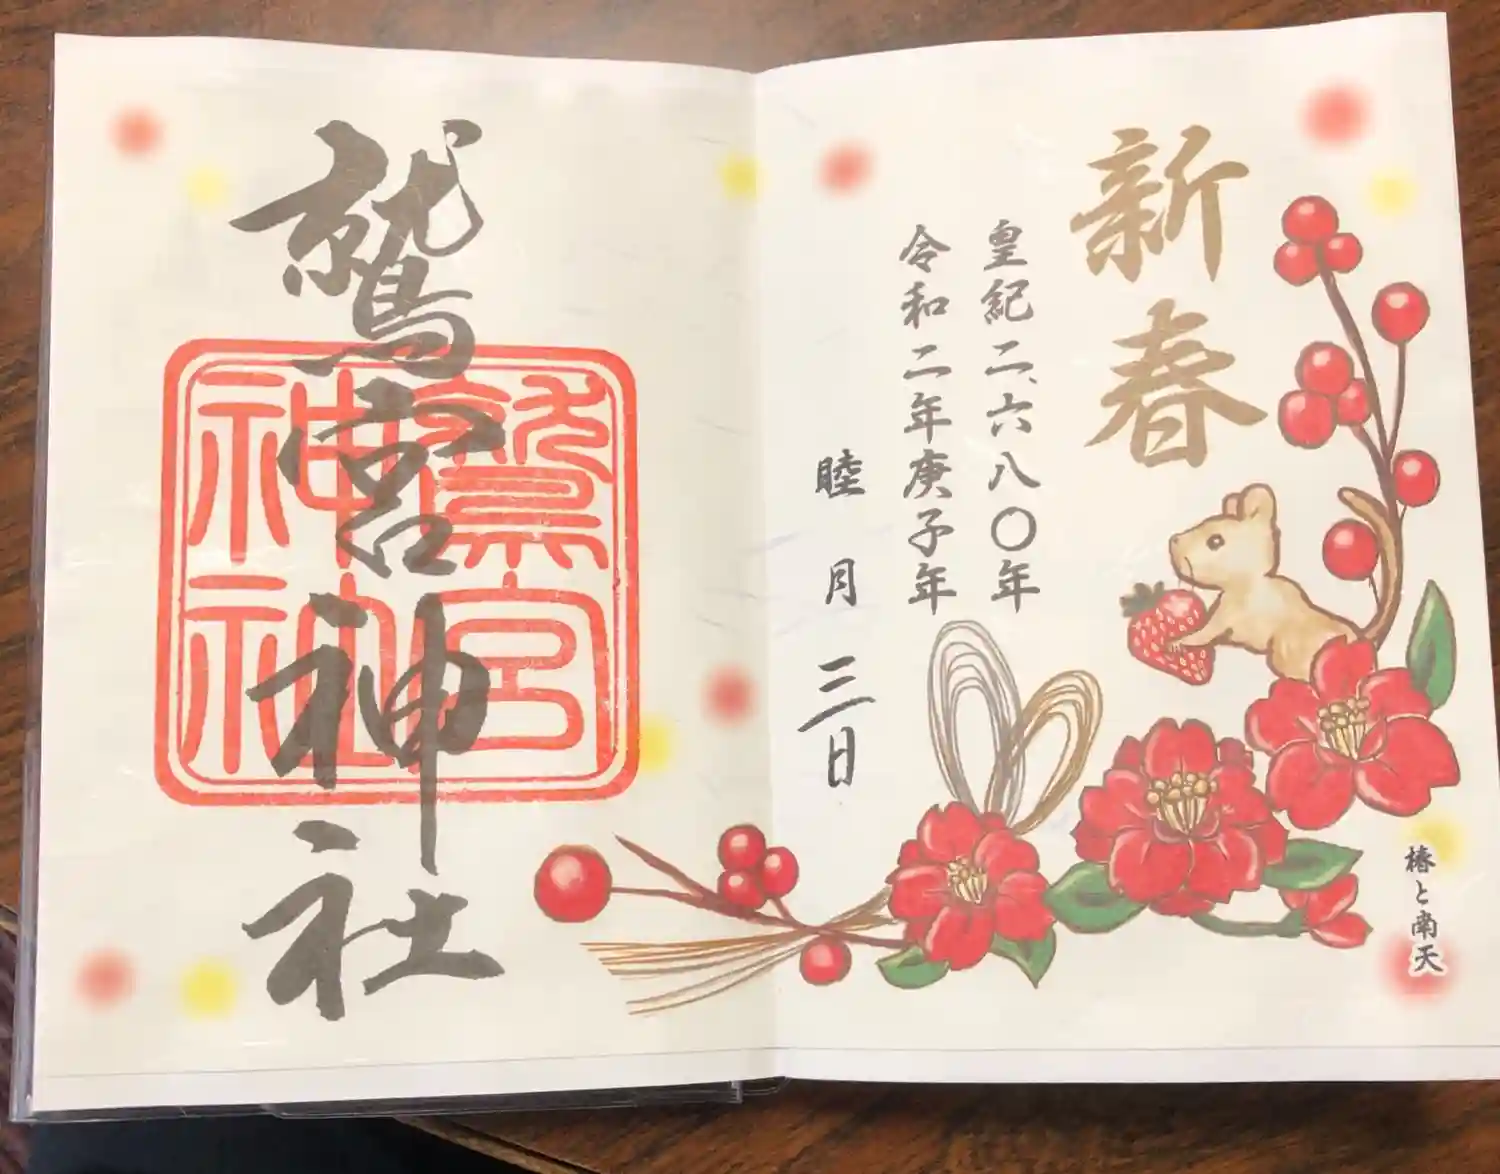 新春
皇紀二、六八〇年
令和二年庚子年
睦月三日
椿と南天
鷲宮神社
鷲宮
神社